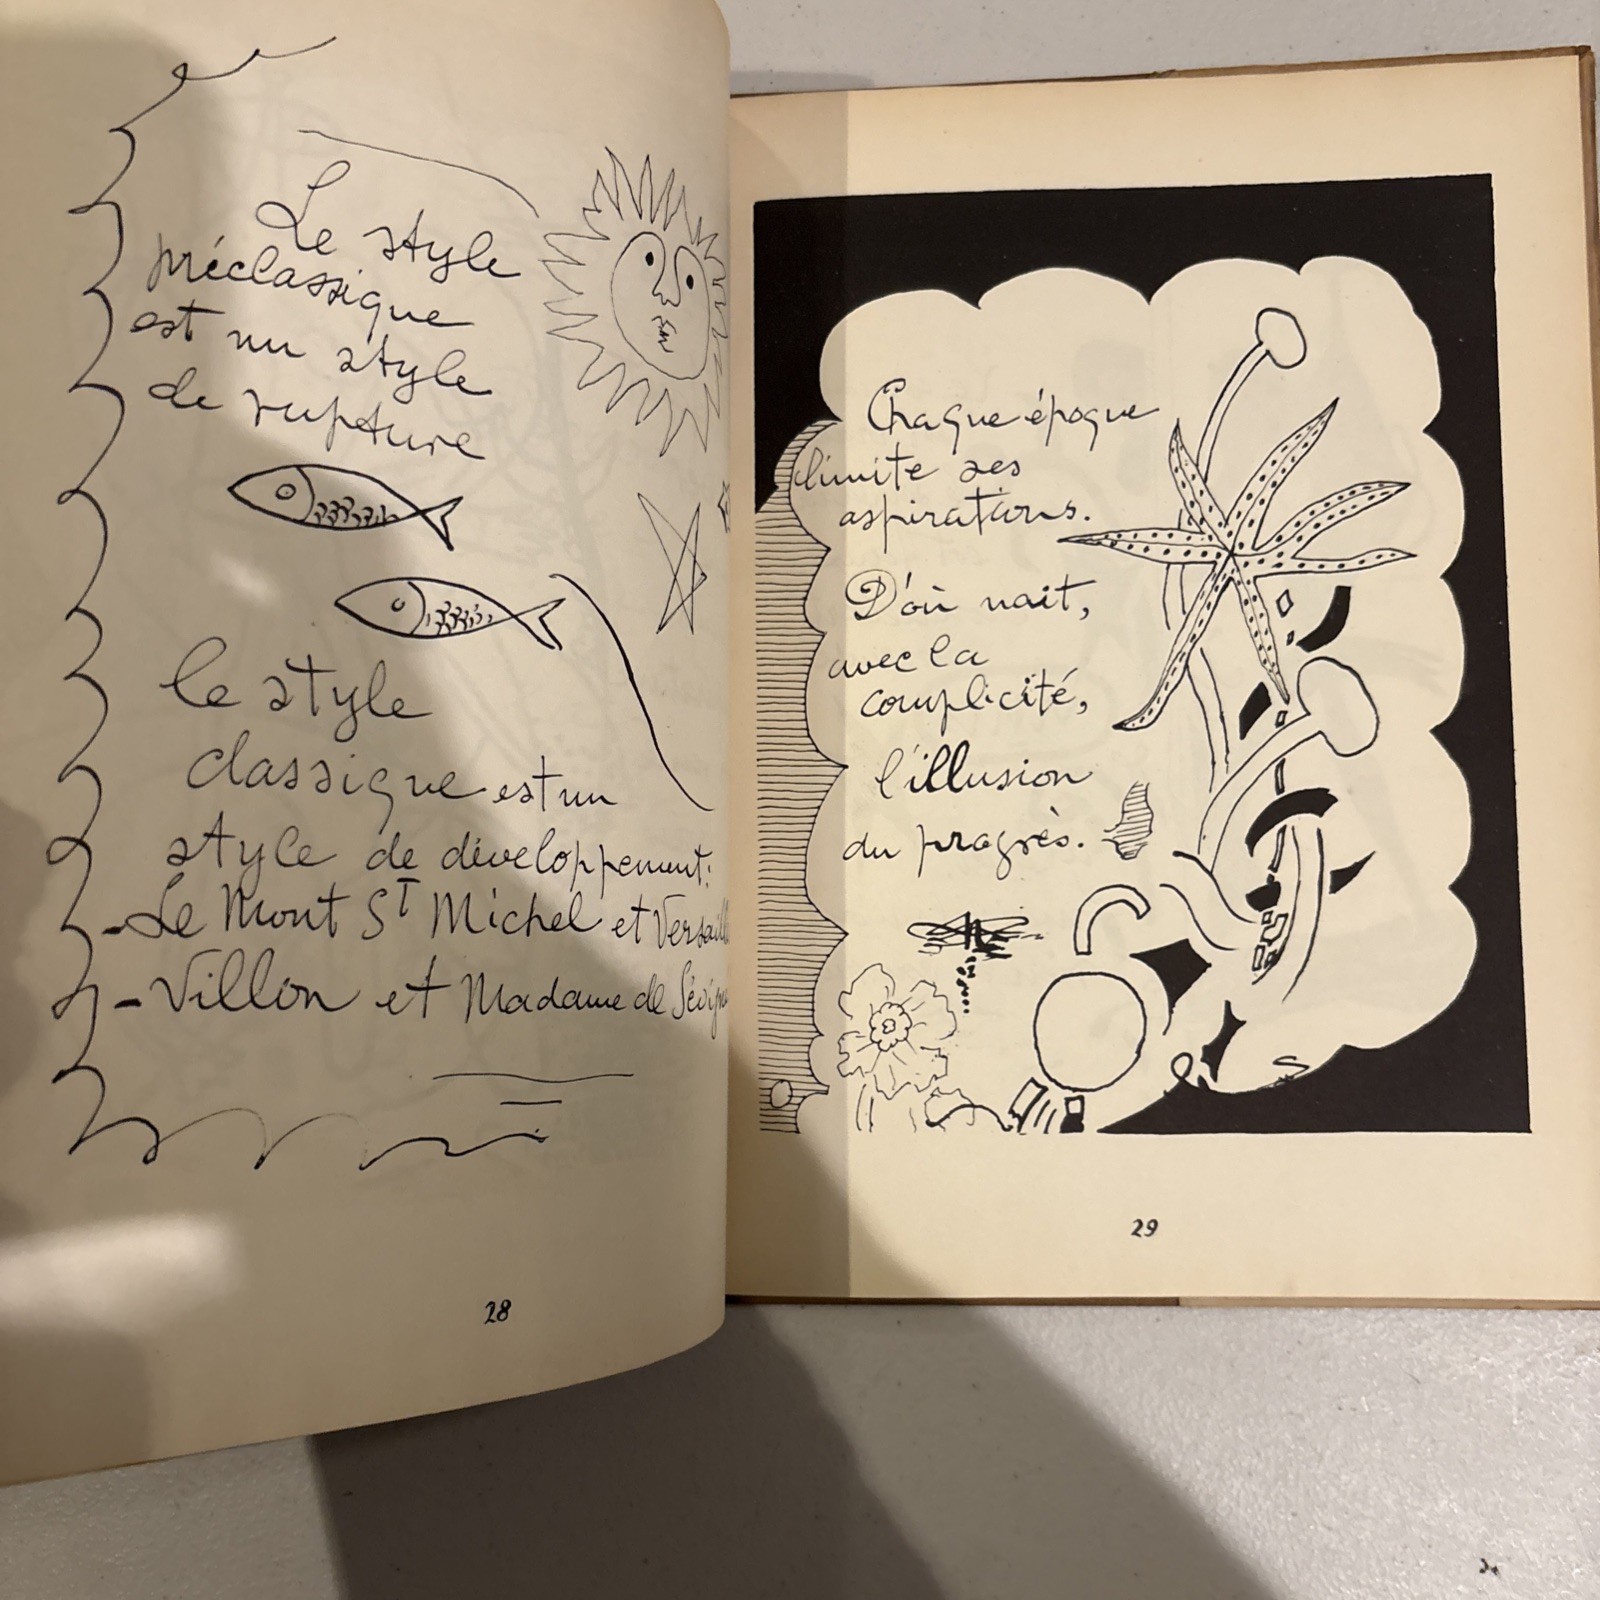 Le style
préclassique
est un style
de rupture
le style
classique est un
style de développement:
- Le Mont St Michel et
- Villon et Madame de
28
Chaque époque
limite ses
aspirations.
D'où nait,
avec la
complicité,
l'illusion
du progrès.
29